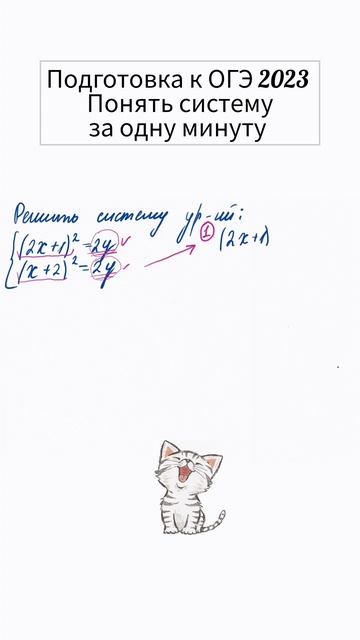 Подготовка к ОГЭ 2023
Понять систему
за одну минуту
Решить систему ур-ий:
(2x+1)² = 2y
(x+2)² = 2y
① (2x+1)